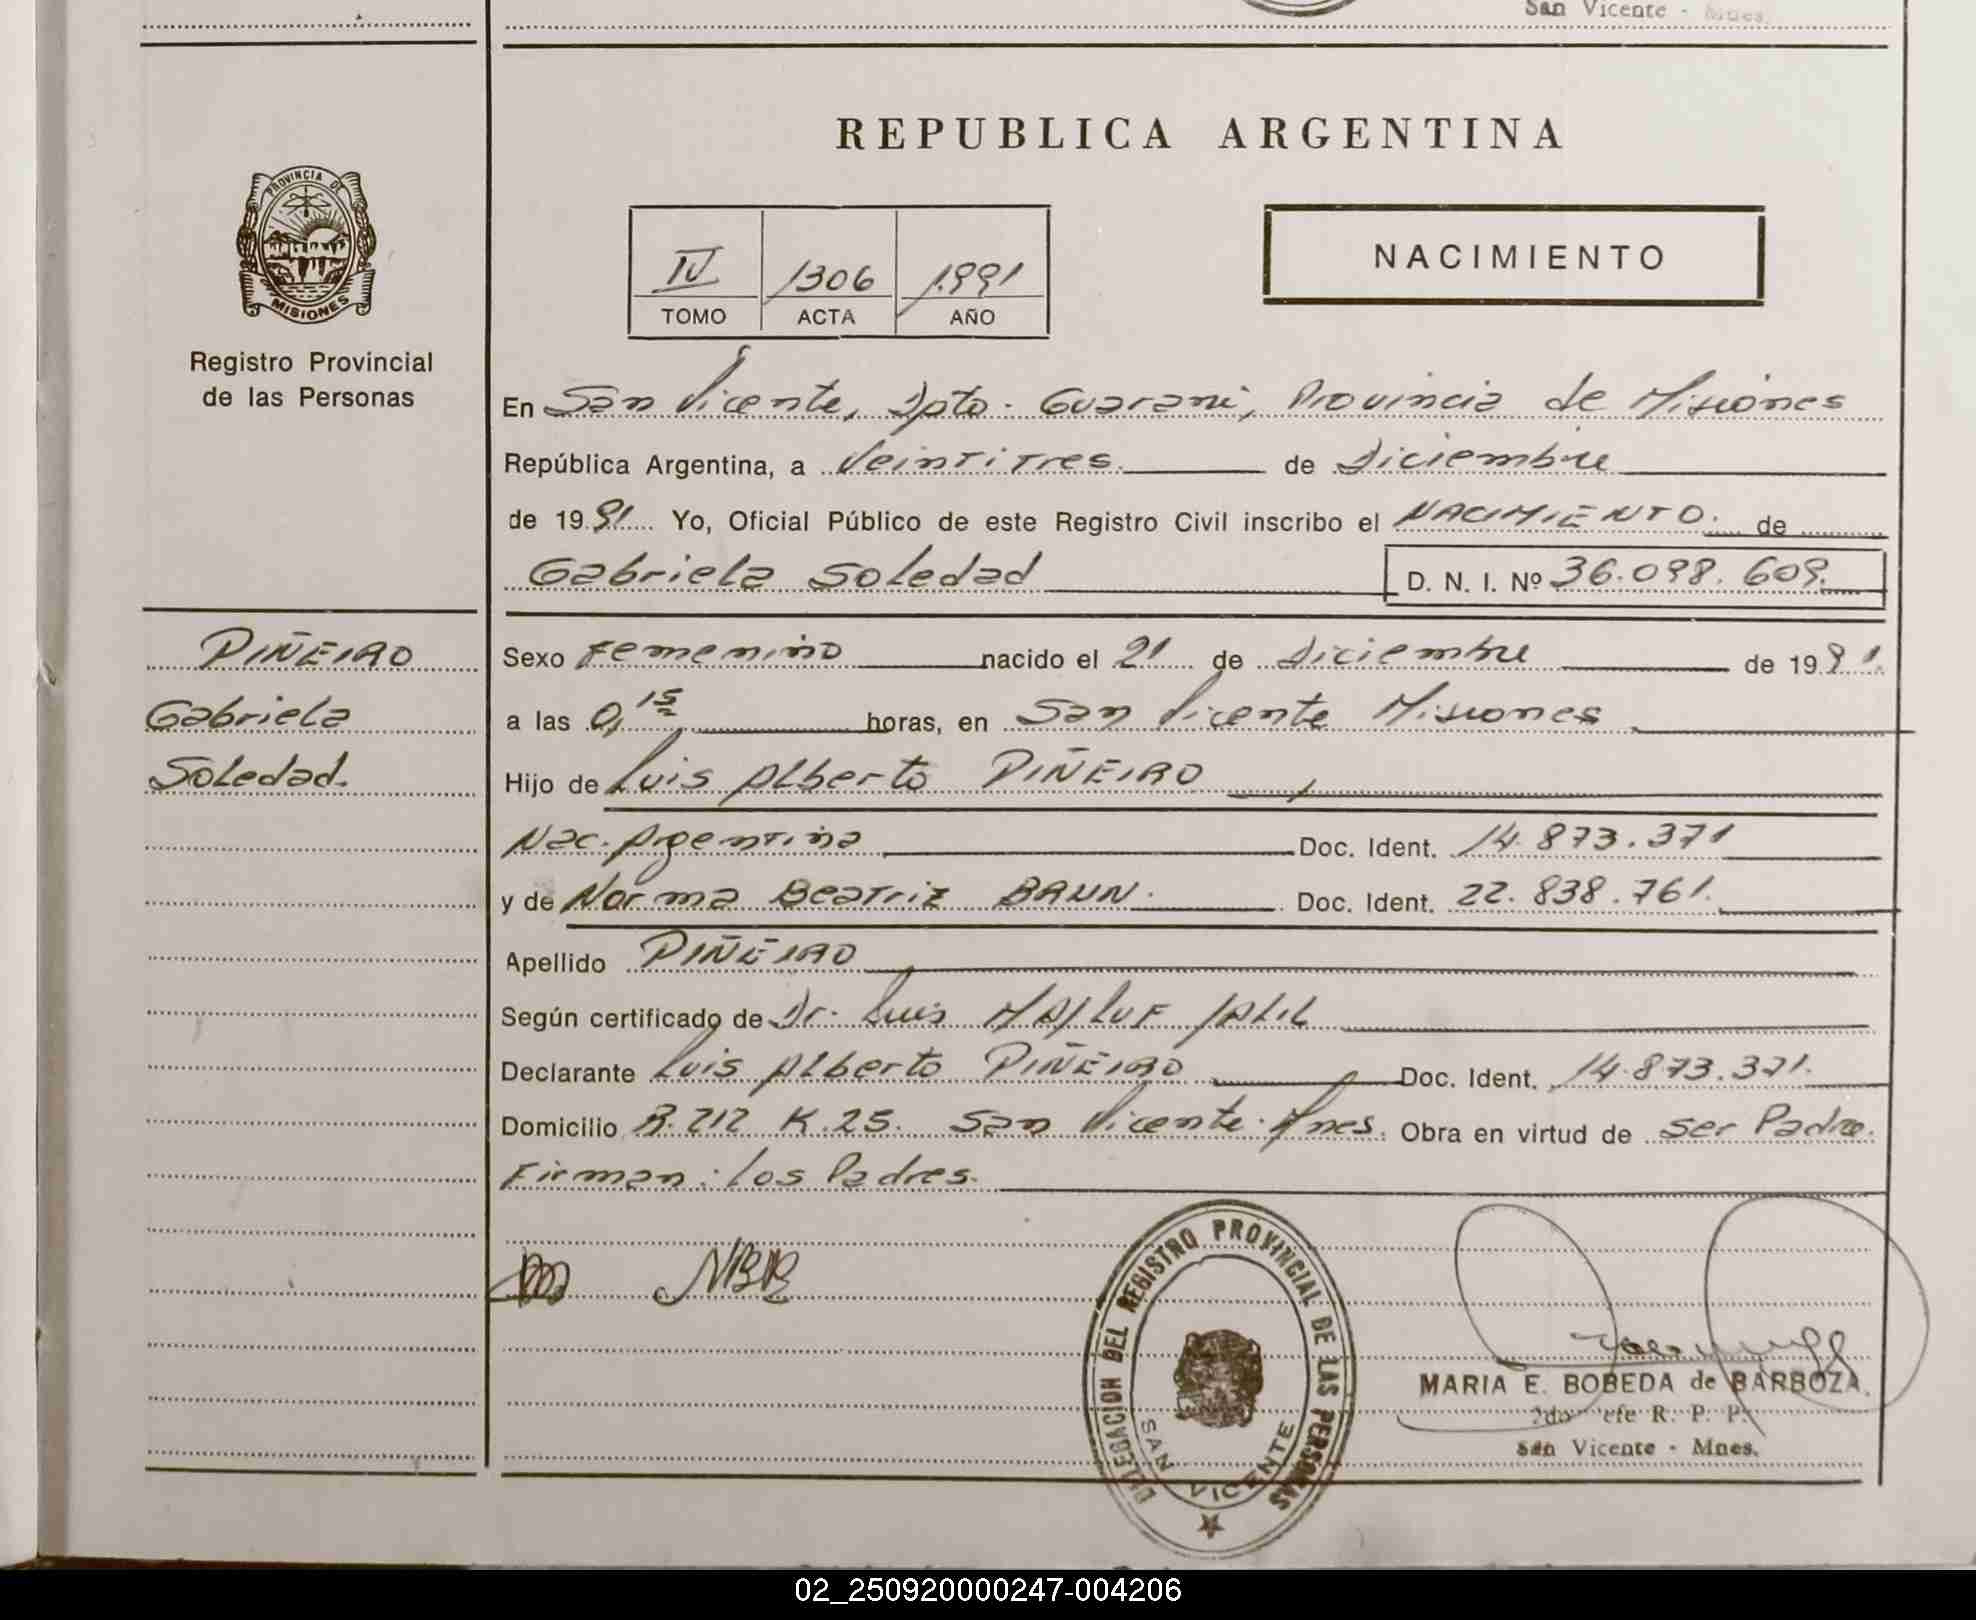 San Vicente - Mnes.
PROVINCIA DE
MISIONES
Registro Provincial
de las Personas
PIÑEIRO
Gabriela
Soledad.
REPUBLICA ARGENTINA
IV 1306 1991
TOMO ACTA AÑO
NACIMIENTO
En San Vicente, Dpto. Guarani, Provincia de Misiones
República Argentina, a Veintitres. de Diciembre
de 1991 Yo, Oficial Público de este Registro Civil inscribo el NACIMIENTO. de
Gabriela Soledad D. N. I. Nº 36.098.609.
Sexo Femenino nacido el 21 de Diciembre de 1991.
a las 0,15 horas, en San Vicente Misiones
Hijo de Luis Alberto PIÑEIRO
Nac. Argentina Doc. Ident. 14.873.371
y de Norma Beatriz BAUN. Doc. Ident. 22.838.761.
Apellido PIÑEIRO
Según certificado de Dr. Luis
Declarante Luis Alberto PIÑEIRO Doc. Ident. 14.873.371.
Domicilio R.212 K.25. San Vicente. Mnes. Obra en virtud de ser Padre.
Firman: Los Padres.
NBB
DELEGACION DEL REGISTRO PROVINCIAL DE LAS PERSONAS
SAN VICENTE
MARIA E. BOBEDA de BARBOZA
2do Jefe R. P. P.
San Vicente - Mnes.
02_250920000247-004206